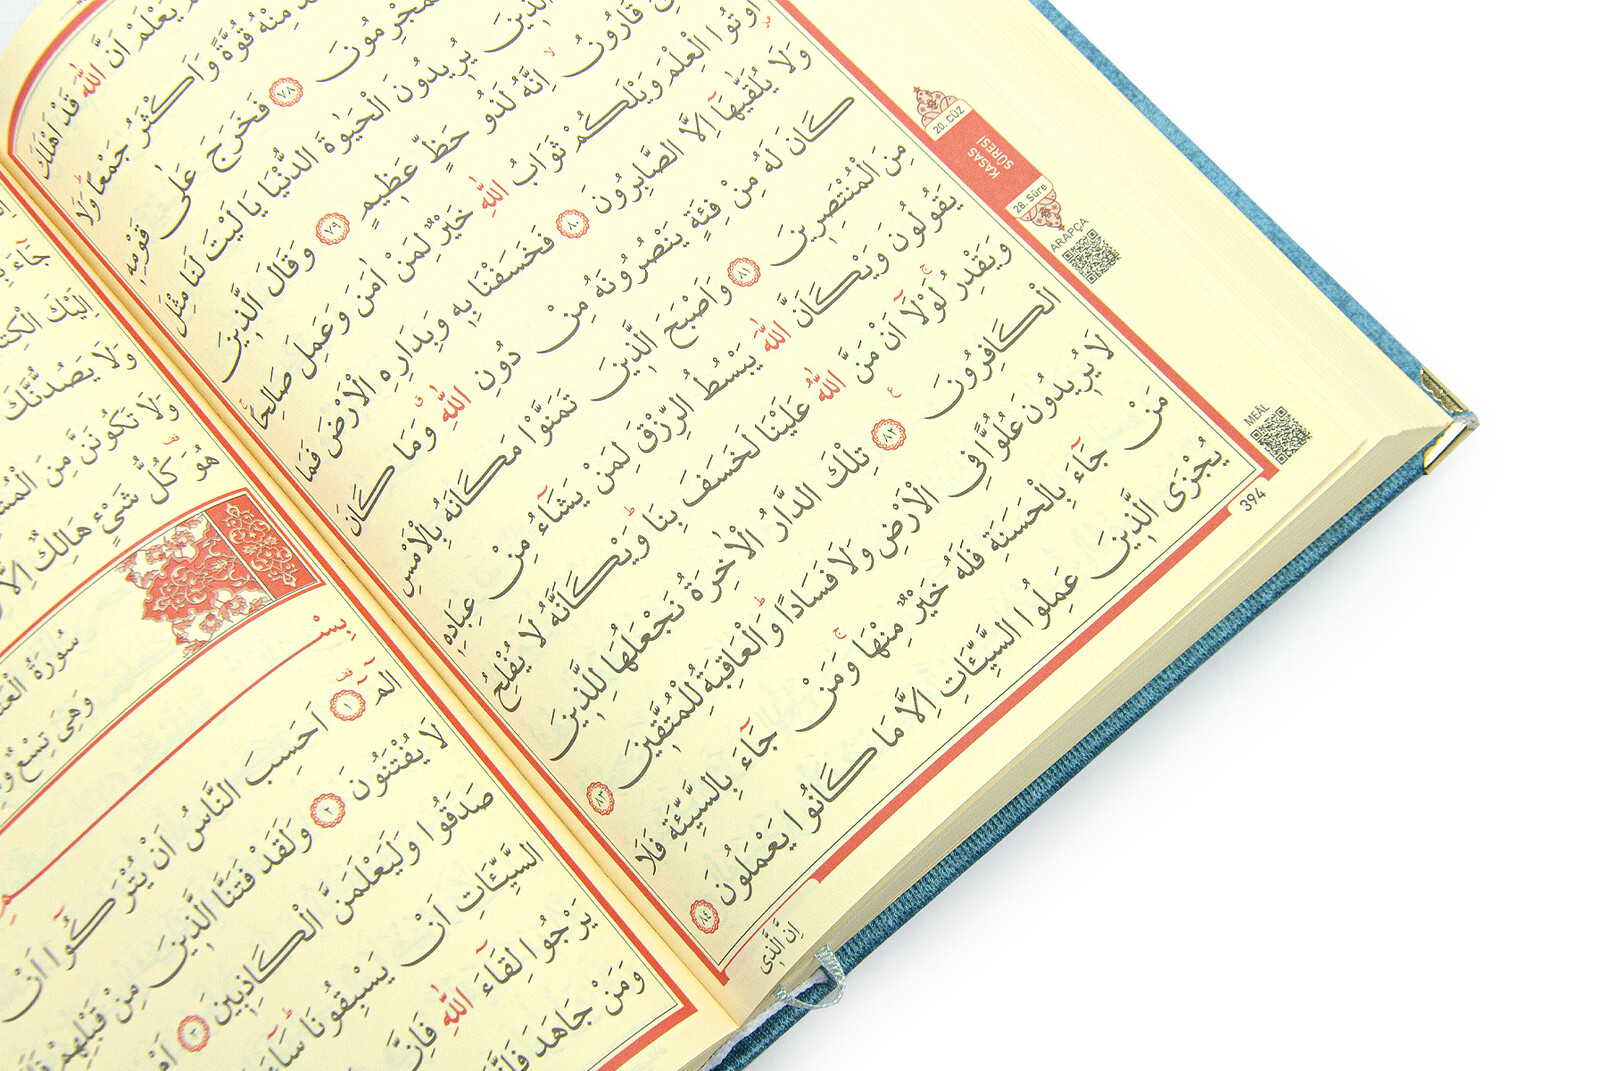 يَعْلَمْ اَنَّ اللّٰهَ قَدْ اَهْلَكَ
مِنْهُ قُوَّةً وَاَكْثَرُ جَمْعًا وَلَا
الْمُجْرِمُونَ ﴿٧٨﴾ فَخَرَجَ عَلٰى قَوْمِه۪
الَّذ۪ينَ يُر۪يدُونَ الْحَيٰوةَ الدُّنْيَا يَا لَيْتَ لَنَا مِثْلَ
قَارُونُ اِنَّهُ لَذُو حَظٍّ عَظ۪يمٍ ﴿٧٩﴾ وَقَالَ الَّذ۪ينَ
اُوتُوا الْعِلْمَ وَيْلَكُمْ ثَوَابُ اللّٰهِ خَيْرٌ لِمَنْ اٰمَنَ وَعَمِلَ صَالِحًا
وَلَا يُلَقّٰيهَٓا اِلَّا الصَّابِرُونَ ﴿٨٠﴾ فَخَسَفْنَا بِه۪ وَبِدَارِهِ الْاَرْضَ فَمَا
كَانَ لَهُ مِنْ فِئَةٍ يَنْصُرُونَهُ مِنْ دُونِ اللّٰهِ وَمَا كَانَ
مِنَ الْمُنْتَصِر۪ينَ ﴿٨١﴾ وَاَصْبَحَ الَّذ۪ينَ تَمَنَّوْا مَكَانَهُ بِالْاَمْسِ
يَقُولُونَ وَيْكَاَنَّ اللّٰهَ يَبْسُطُ الرِّزْقَ لِمَنْ يَشَٓاءُ مِنْ عِبَادِه۪
وَيَقْدِرُ لَوْلَٓا اَنْ مَنَّ اللّٰهُ عَلَيْنَا لَخَسَفَ بِنَا وَيْكَاَنَّهُ لَا يُفْلِحُ
الْكَافِرُونَ ﴿٨٢﴾ تِلْكَ الدَّارُ الْاٰخِرَةُ نَجْعَلُهَا لِلَّذ۪ينَ
لَا يُر۪يدُونَ عُلُوًّا فِي الْاَرْضِ وَلَا فَسَادًا وَالْعَاقِبَةُ لِلْمُتَّق۪ينَ ﴿٨٣﴾
مَنْ جَٓاءَ بِالْحَسَنَةِ فَلَهُ خَيْرٌ مِنْهَا وَمَنْ جَٓاءَ بِالسَّيِّئَةِ فَلَا
يُجْزَى الَّذ۪ينَ عَمِلُوا السَّيِّـَٔاتِ اِلَّا مَا كَانُوا يَعْمَلُونَ ﴿٨٤﴾
اِنَّ الَّذ۪ي
20. CÜZ
KASAS
SÛRESİ
28. Sûre
ARAPÇA
MEÂL
394
جَٓاءَ
اِلَيْكَ
وَلَا يَصُدُّنَّكَ
وَلَا تَكُونَنَّ مِنَ
هُوَ كُلُّ شَيْءٍ هَالِكٌ اِلَّا
سُورَةُ
وَهِيَ تِسْعٌ
الٓمٓ ﴿١﴾ اَحَسِبَ النَّاسُ اَنْ يُتْرَكُٓوا اَنْ
لَا يُفْتَنُونَ ﴿٢﴾ وَلَقَدْ فَتَنَّا الَّذ۪ينَ مِنْ قَبْلِهِمْ
صَدَقُوا وَلَيَعْلَمَنَّ الْكَاذِب۪ينَ ﴿٣﴾ اَمْ
السَّيِّـَٔاتِ اَنْ يَسْبِقُونَا سَٓاءَ
يَرْجُوا لِقَٓاءَ اللّٰهِ فَاِنَّ
وَمَنْ جَاهَدَ فَاِنَّمَا